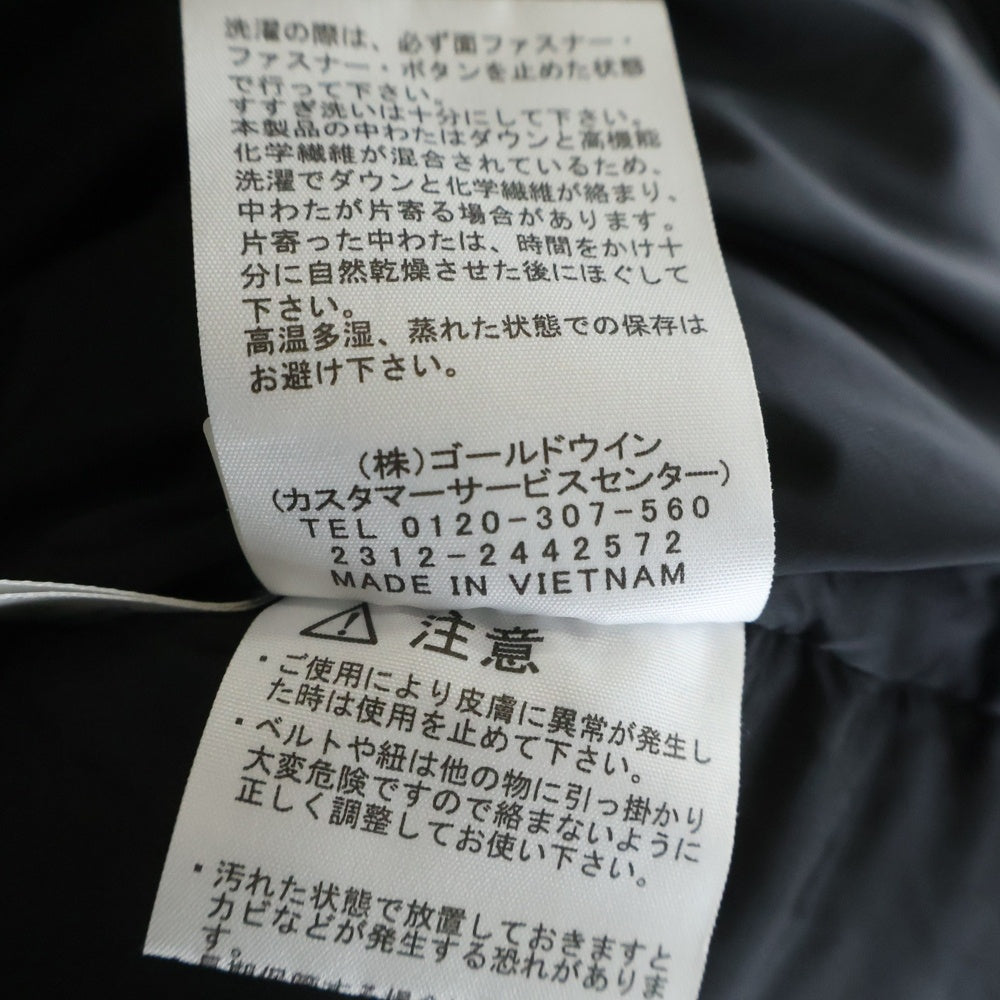 洗濯の際は、必ず面ファスナー・
ファスナー・ボタンを止めた状態
で行って下さい。
すすぎ洗いは十分にして下さい。
本製品の中わたはダウンと高機能
化学繊維が混合されているため、
洗濯でダウンと化学繊維が絡まり、
中わたが片寄る場合があります。
片寄った中わたは、時間をかけ十
分に自然乾燥させた後にほぐして
下さい。
高温多湿、蒸れた状態での保存は
お避け下さい。
(株)ゴールドウイン
(カスタマーサービスセンター)
TEL 0120-307-560
2312-2442572
MADE IN VIETNAM
注意
・ご使用により皮膚に異常が発生し
た時は使用を止めて下さい。
・ベルトや紐は他の物に引っ掛かり
大変危険ですので絡まないように
正しく調整してお使い下さい。
・汚れた状態で放置しておきますと
カビなどが発生する恐れがありま
す。